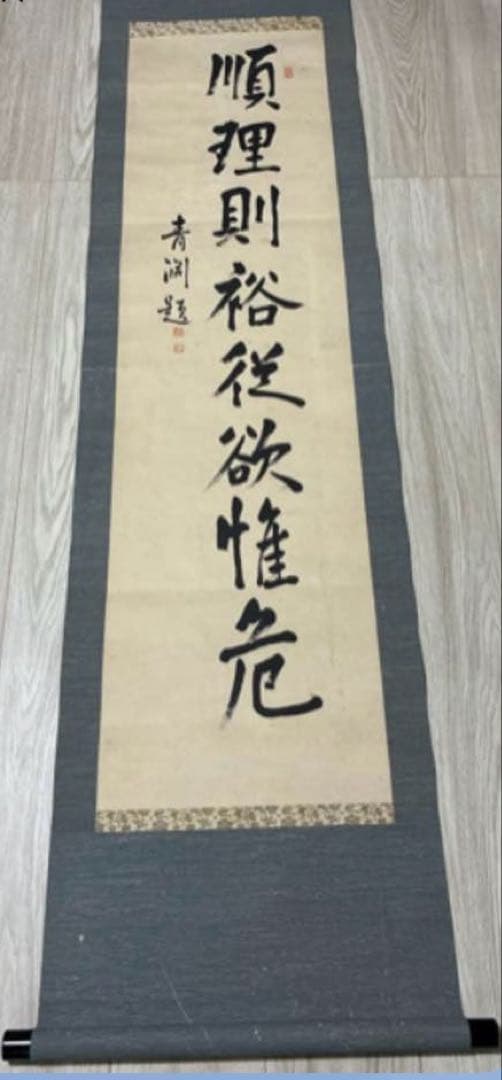 順理則裕従欲惟危
青渊題